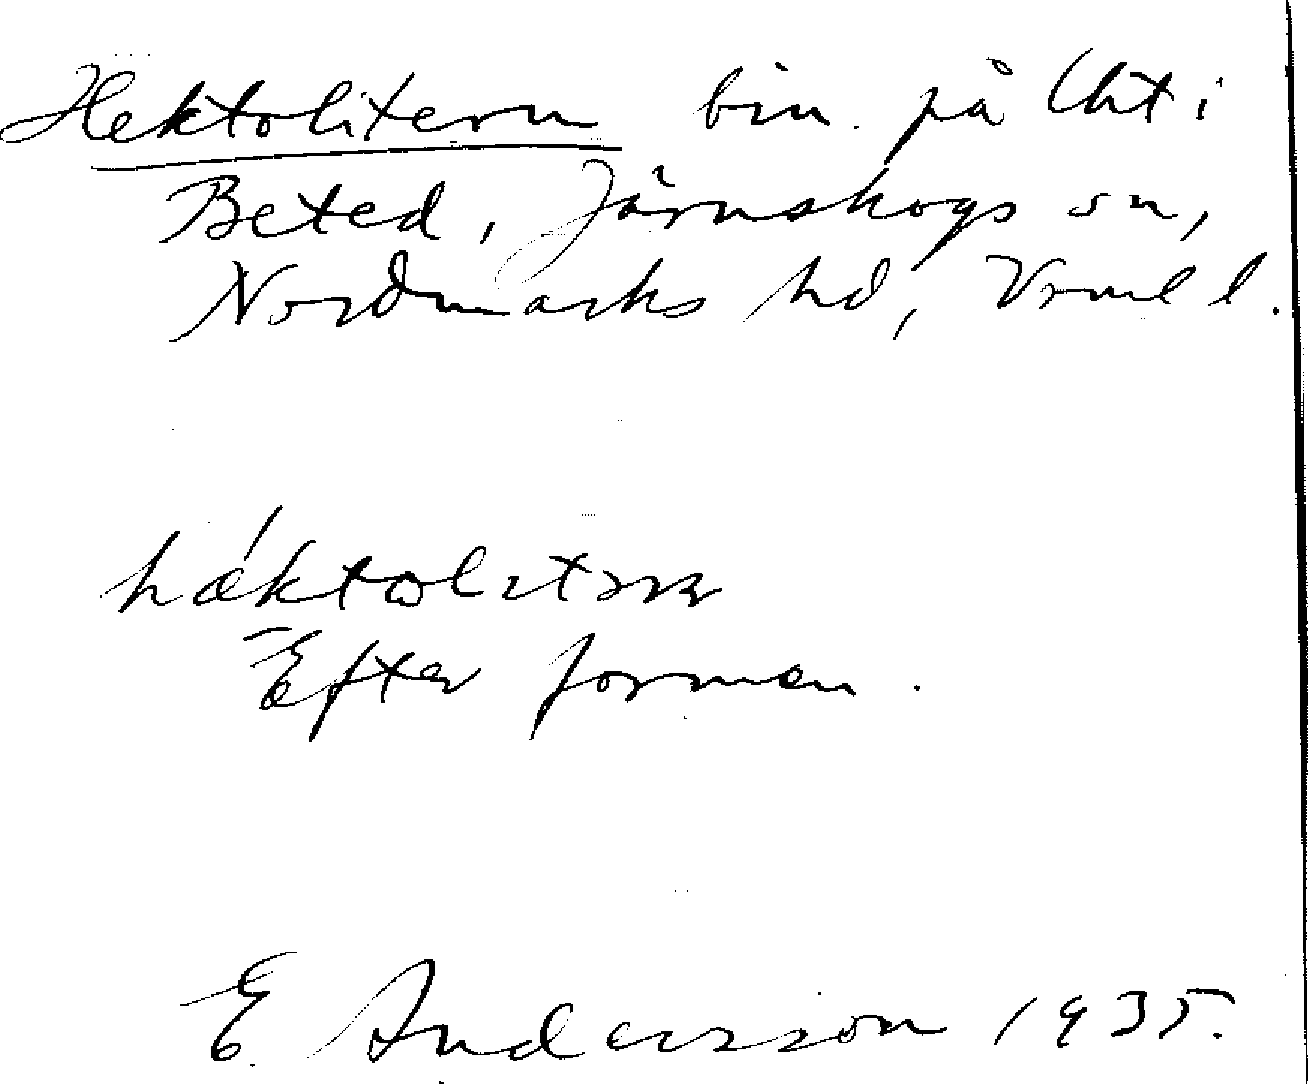 Hektolitern bin. på Uht i
Beted, Järnskogs sn,
Nordmarks hd, Vrml l.
Efter formen.
E. Andersson 1935.